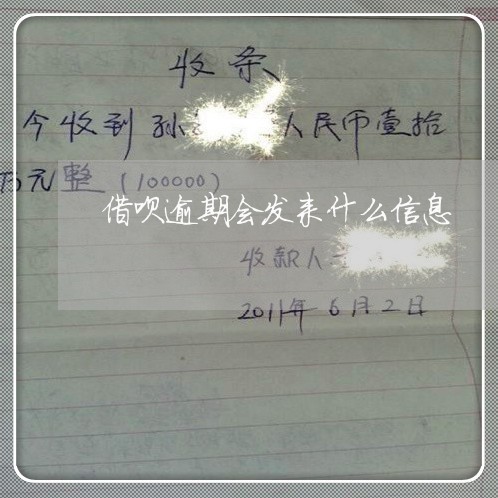 收条
今收到孙 人民币壹拾
万元整（100000）
借呗逾期会发来什么信息
收款人
2011年6月2日